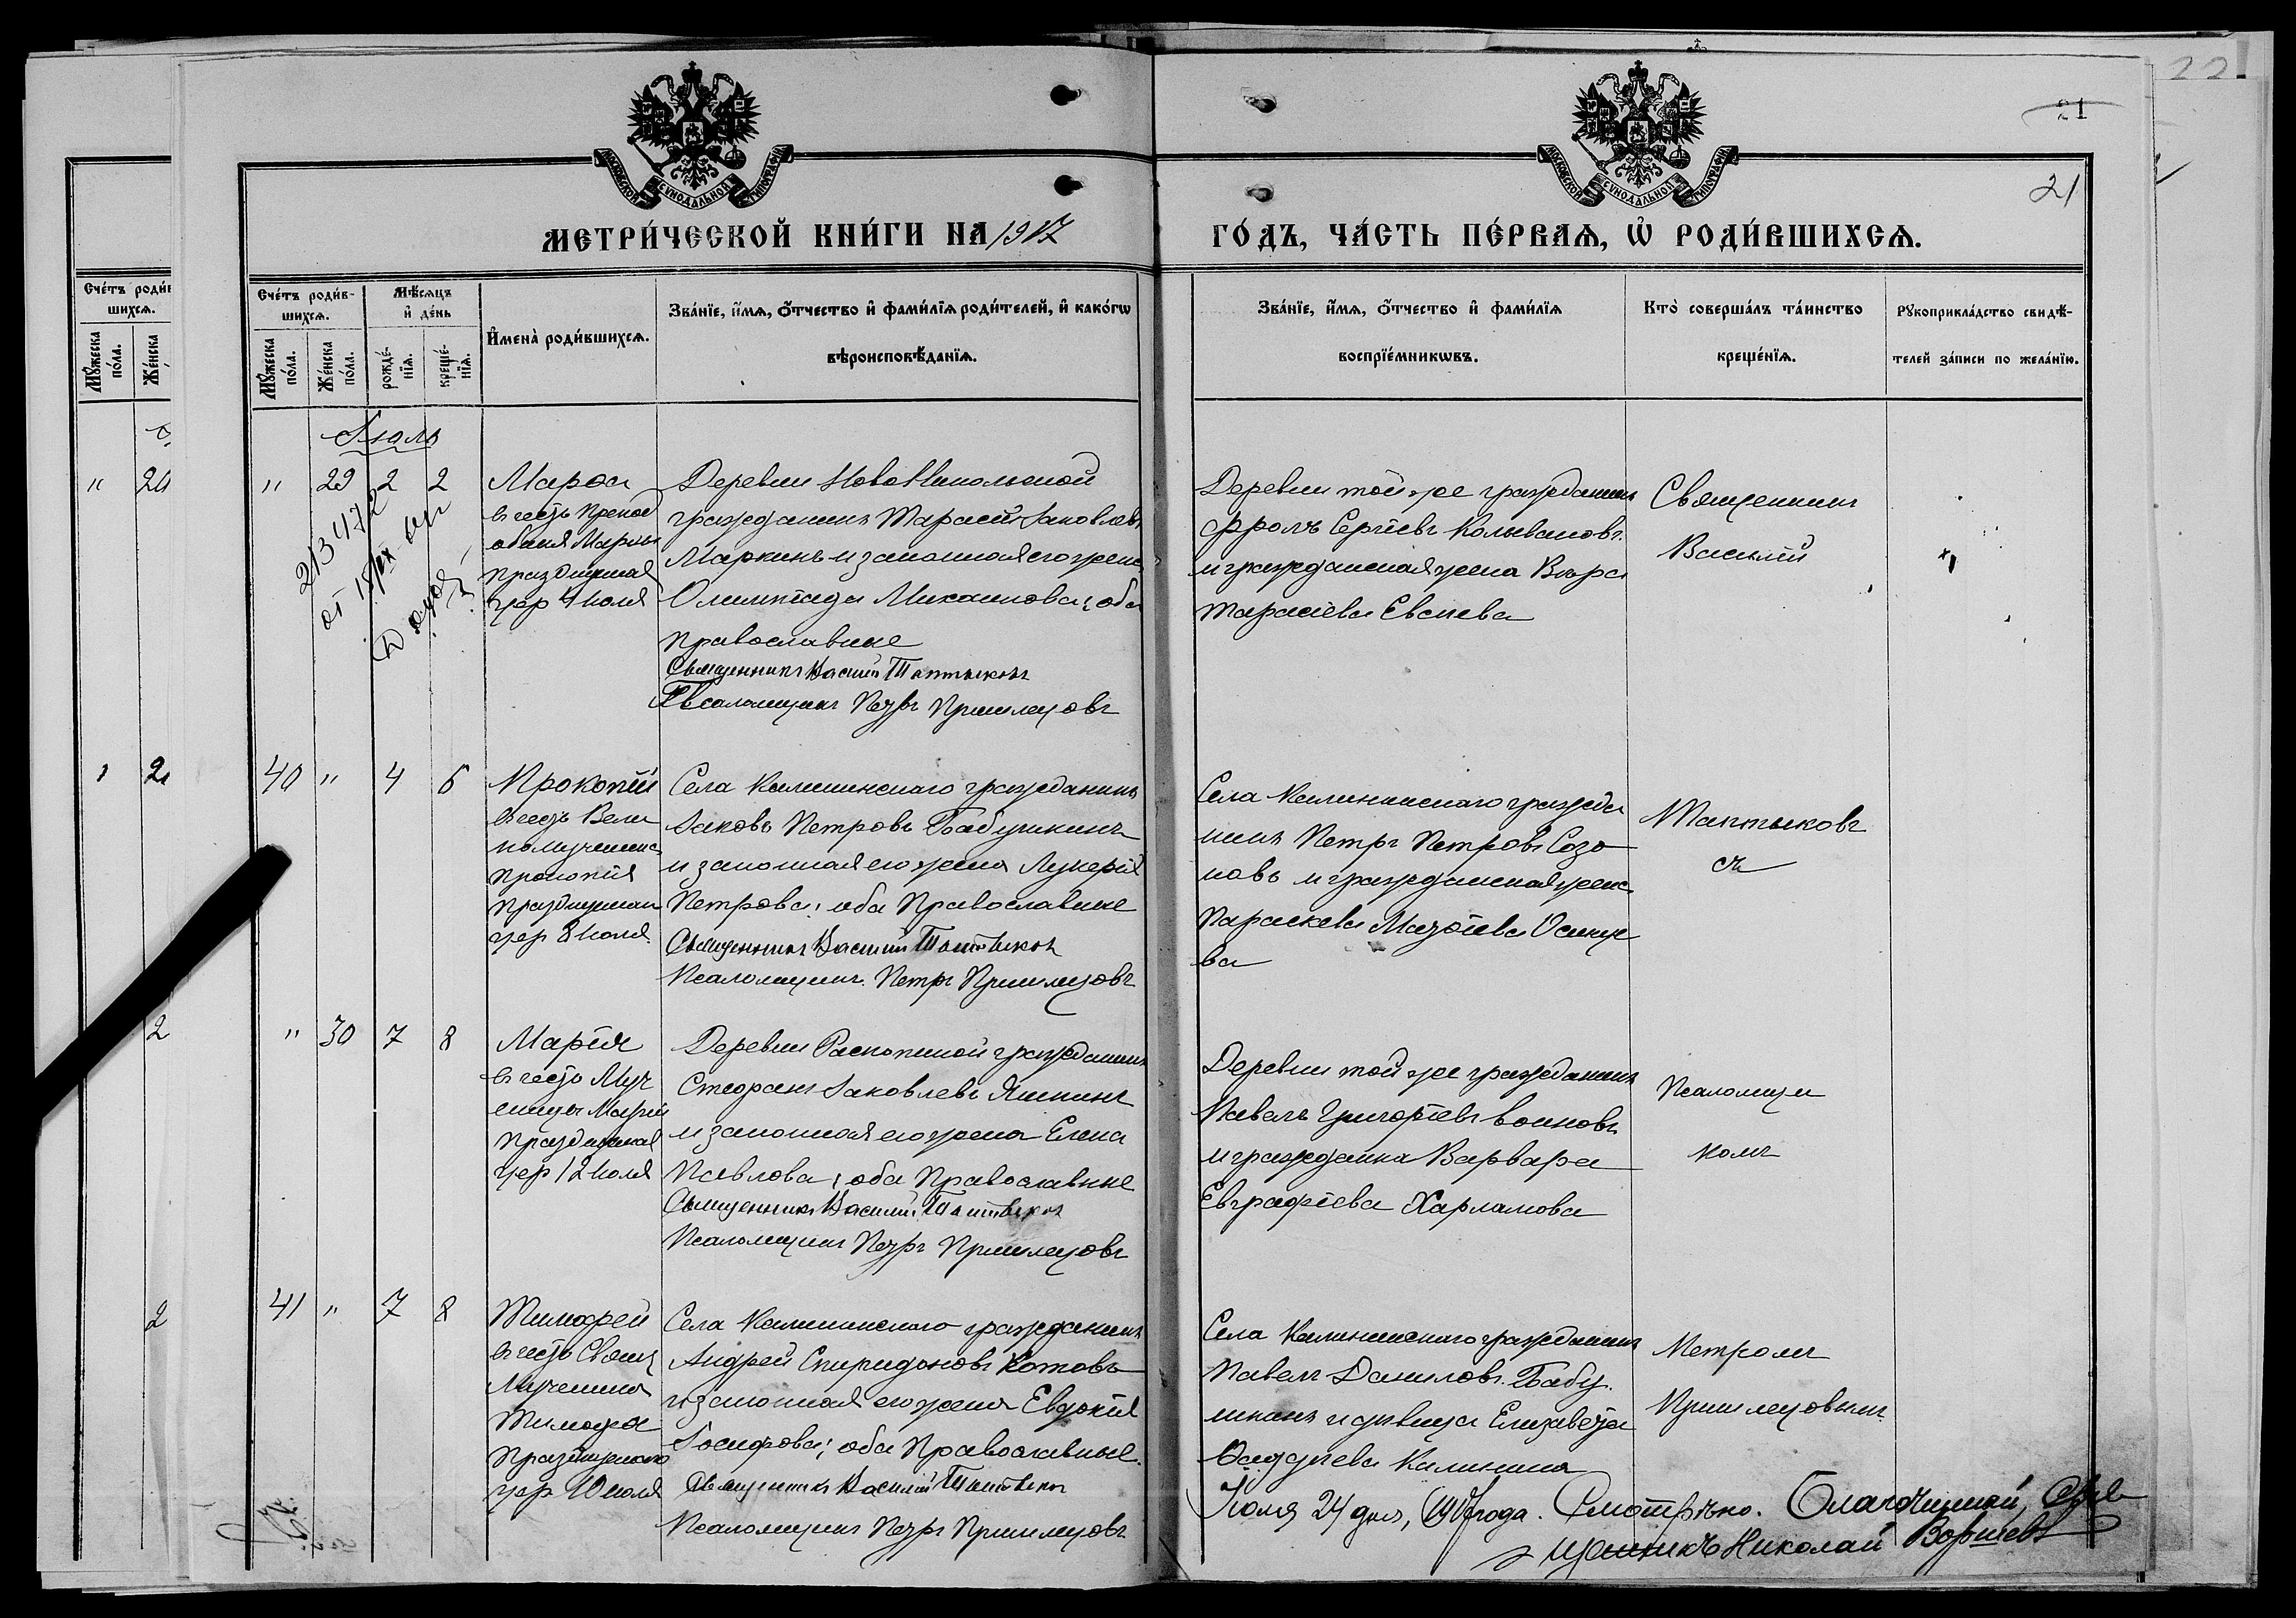 22
21
21
МОСКОВСКОЙ СУНОДАЛЬНОЙ ТИПОГРАФІИ
МОСКОВСКОЙ СУНОДАЛЬНОЙ ТИПОГРАФІИ
МЕТРИ́ЧЕСКОЙ КНИ́ГИ НА 1917
ГО́ДЪ, ЧА́СТЬ ПЕ́РВАѦ, Ѡ҆ РОДИ́ВШИХСѦ.
Сче́тъ роди́в-
шихсѧ.
Мꙋ́жеска по́ла.
Же́нска
Сче́тъ роди́в-
шихсѧ.
Мꙋ́жеска по́ла.
Же́нска по́ла.
Мѣ́сѧцъ
и҆ де́нь
рожде́-
нїѧ.
креще́-
нїѧ.
И҆мена̀ роди́вшихсѧ.
Зва́нїе, и҆́мѧ, ѻ҆́тчество и҆ фами́лїѧ роди́телей, и҆ како́гѡ
вѣроисповѣ́данїѧ.
Зва́нїе, и҆́мѧ, ѻ҆́тчество и҆ фами́лїѧ
воспрїе́мникѡвъ.
Кто̀ соверша́лъ та́инство
креще́нїѧ.
Рꙋкоприкла́дство свидѣ́-
телей за́писи по жела́нїю.
Іюль
" 29 2 2
213472
Марѳа
въ честь Препод
обныя Марѳы
празднуемая
цер 4 июля
Деревни НовоНикольской
гражданинъ Тарасій Іаковлевъ
Маркинъ и законная его жена
Олимпіада Михаилова; оба
Православные
Священникъ Василій Таптыковъ
Псаломщикъ Петръ Пришлецовъ
Деревни той же гражданинъ
Фролъ Сергіевъ Колывановъ
и гражданская жена Вѣра
Тарасіева Евсеева
Священникъ
Василій
40 " 4 6
Прокопій
въ честь Вели
комученика
Прокопія
празднуемаго
цер 8 июля
Села Калининскаго гражданинъ
Іаковъ Петровъ Бабушкинъ
и законная его жена Лукерія
Петрова; оба Православные
Священникъ Василій Таптыковъ
Псаломщикъ Петръ Пришлецовъ
Села Калининскаго гражда
нинъ Петръ Петровъ Созо
новъ и гражданская жена
Параскева
ва
Таптыковъ
съ
" 30 7 8
Марія
въ честь Муч
еницы Маріи
празднуемая
цер 12 июля
Деревни Распопиной гражданинъ
Стефанъ Іаковлевъ Яшкинъ
и законная его жена Елена
Павлова; оба Православные
Священникъ Василій Таптыковъ
Псаломщикъ Петръ Пришлецовъ
Деревни той же гражданинъ
Павелъ Григоріевъ Воиновъ
и гражданка Варвара
Евграфіева Харламова
Псаломщи
комъ
41 " 7 8
Тимофей
въ честь Священ
Мученика
Тимофея
празднуемаго
цер 10 июля
Села Калининскаго гражданинъ
Андрей Спиридоновъ Котовъ
и законная его жена Евдокія
Іосифова; оба Православные.
Священникъ Василій Таптыковъ
Псаломщикъ Петръ Пришлецовъ
Села Калининскаго гражданинъ
Павелъ Даниловъ Бабу
шкинъ и дѣвица Елизавета
Фаддеева Калинина
Петромъ
Пришлецовымъ
Іюля 24 дня, 1917 года. Смотрѣно. Благочинный, Свя
щенникъ Николай